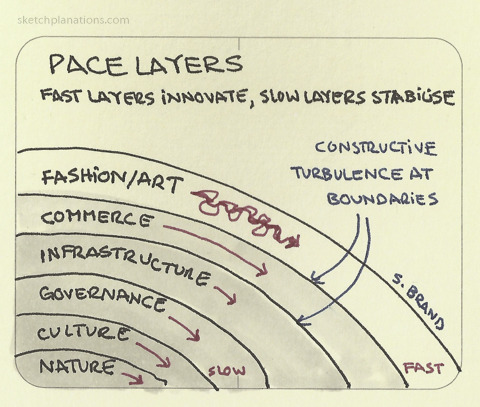 sketchplanations.com
PACE LAYERS
FAST LAYERS INNOVATE, SLOW LAYERS STABILISE
CONSTRUCTIVE
TURBULENCE AT
BOUNDARIES
FASHION/ART
COMMERCE
INFRASTRUCTURE
GOVERNANCE
CULTURE
NATURE
SLOW
FAST
S. BRAND